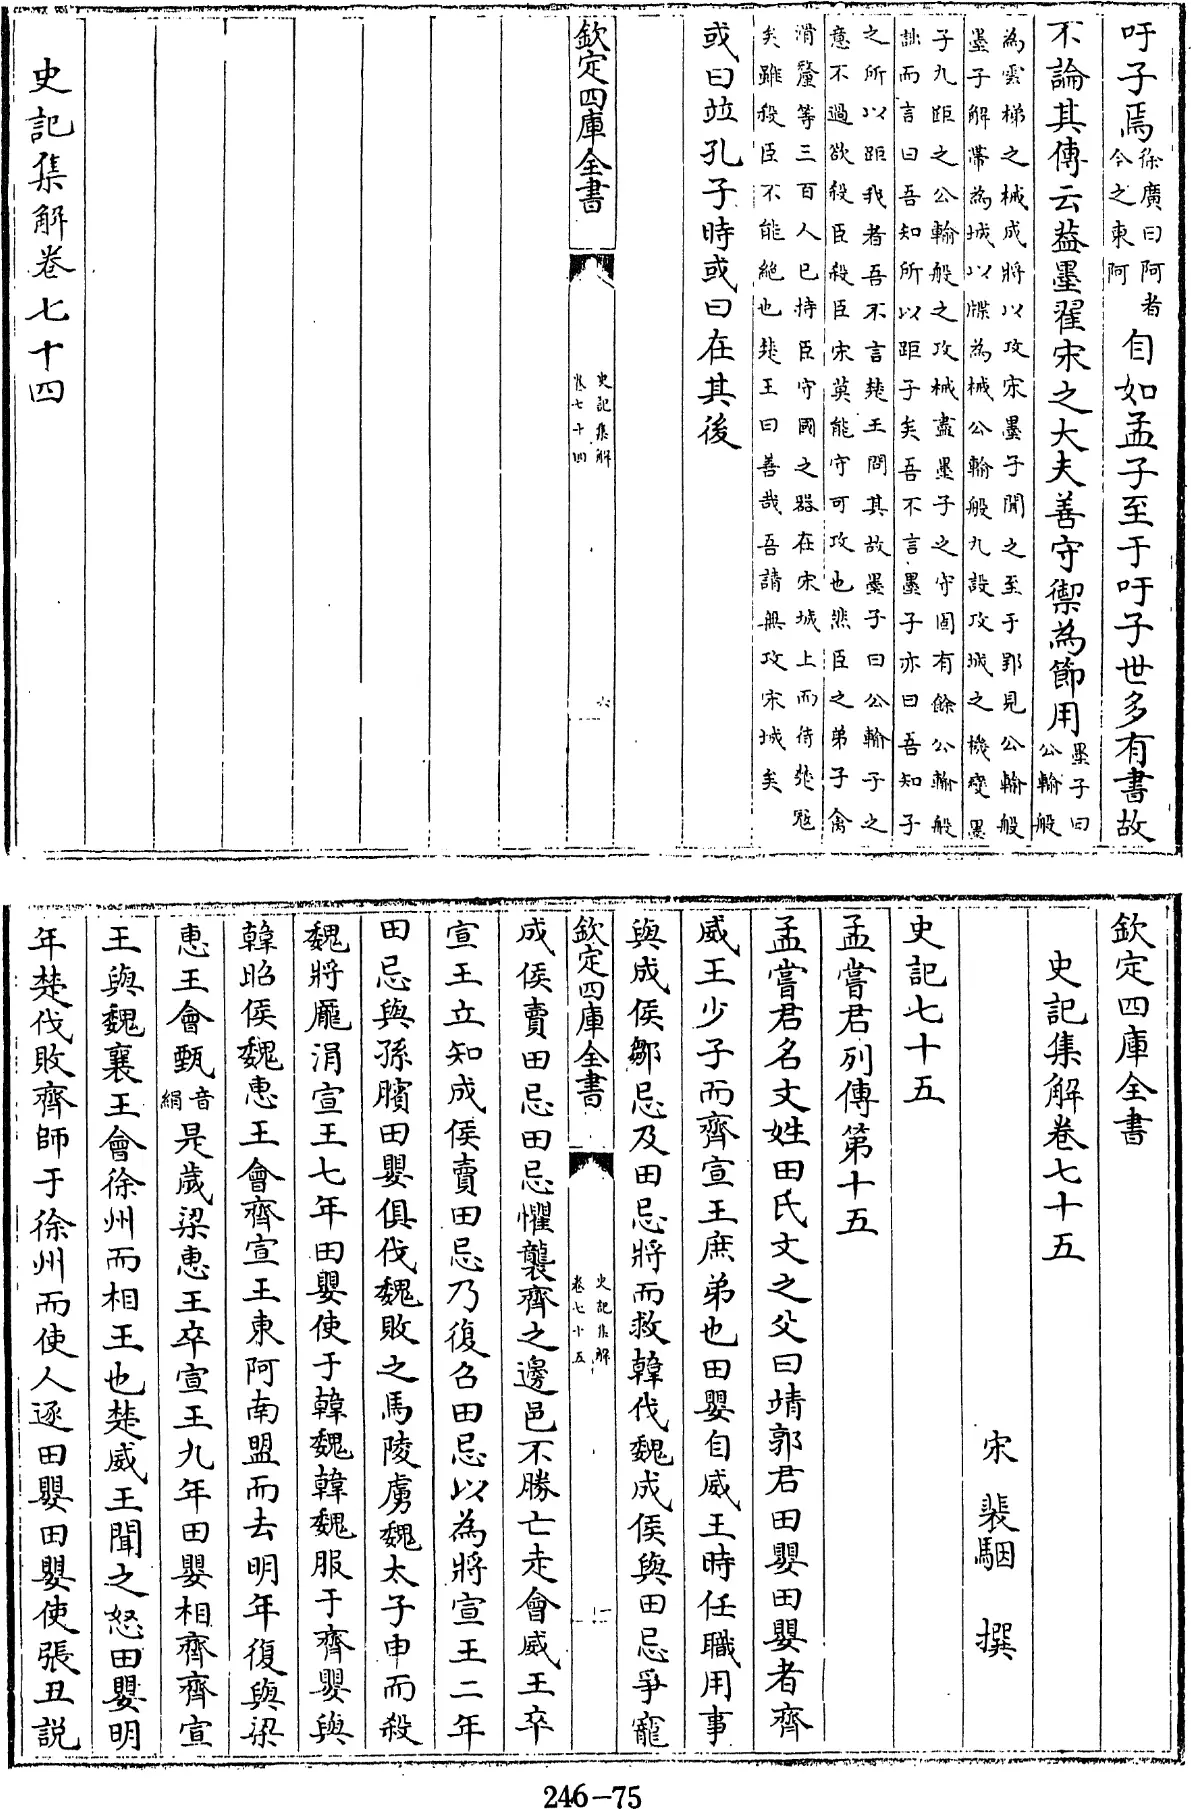 吁子焉徐廣曰阿者今之東阿自如孟子至于吁子世多有書故
不論其傳云葢墨翟宋之大夫善守禦為節用墨子曰公輸般
為雲梯之械成將以攻宋墨子聞之至于郢見公輸般
墨子解帶為城以牒為械公輸般九設攻城之機變墨
子九距之公輸般之攻械盡墨子之守固有餘公輸般
詘而言曰吾知所以距子矣吾不言墨子亦曰吾知子
之所以距我者吾不言楚王問其故墨子曰公輸子之
意不過欲殺臣殺臣宋莫能守可攻也然臣之弟子禽
滑釐等三百人已持臣守國之器在宋城上而待楚寇
矣雖殺臣不能絶也楚王曰善哉吾請無攻宋城矣
或曰竝孔子時或曰在其後
欽定四庫全書
史記集解
卷七十四
六
史記集解卷七十四
欽定四庫全書
史記集解卷七十五
宋 裴駰 撰
史記七十五
孟嘗君列傳第十五
孟嘗君名文姓田氏文之父曰靖郭君田嬰田嬰者齊
威王少子而齊宣王庶弟也田嬰自威王時任職用事
與成侯鄒忌及田忌將而救韓伐魏成侯與田忌爭寵
欽定四庫全書
史記集解
卷七十五
一
成侯賣田忌田忌懼襲齊之邊邑不勝亡走會威王卒
宣王立知成侯賣田忌乃復召田忌以為將宣王二年
田忌與孫臏田嬰俱伐魏敗之馬陵虜魏太子申而殺
魏將龐涓宣王七年田嬰使于韓魏韓魏服于齊嬰與
韓昭侯魏惠王會齊宣王東阿南盟而去明年復與梁
惠王會甄音絹是歲梁惠王卒宣王九年田嬰相齊齊宣
王與魏襄王會徐州而相王也楚威王聞之怒田嬰明
年楚伐敗齊師于徐州而使人逐田嬰田嬰使張丑説
246-75